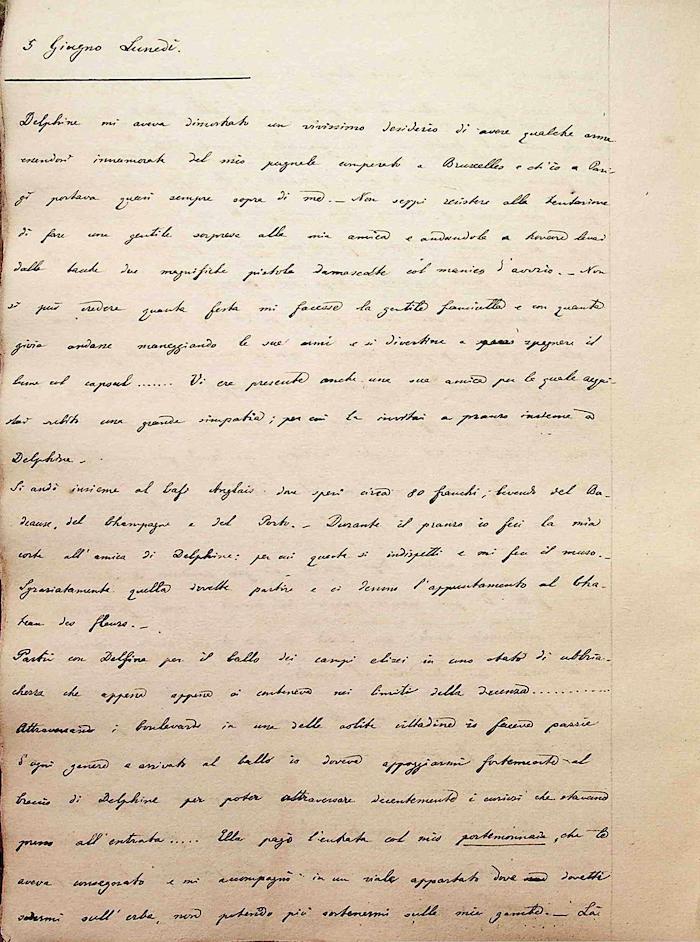 5 Giugno Lunedì.
Delphine mi aveva dimostrato un vivissimo desiderio di avere qualche arma
essendosi innamorata del mio pugnale comperato a Bruxelles e ch'io a Pari-
gi portava quasi sempre sopra di me. _ Non seppi resistere alla tentazione
di fare una gentile sorpresa alla mia amica e andandola a trovare levai
dalle tasche due magnifiche pistole damascate col manico d'avorio. _ Non
si può credere quanta festa mi facesse la gentile fanciulla e con quanta
gioia andasse maneggiando le sue armi e si divertisse a spegnere il
lume col capsul ....... Vi era presente anche una sua amica per la quale acqui-
stai subito una grande simpatia; per cui la invitai a pranzo insieme a
Delphine _
Si andò insieme al Café Anglais dove spesi circa 80 franchi; bevendo del Bo-
deaux, del Champagne e del Porto. _ Durante il pranzo io feci la mia
corte all'amica di Delphine: per cui questa si indispettì e mi fece il muso. _
Sgraziatamente quella dovette partire e ci demmo l'appuntamento al Cha-
teau des fleurs. _
Partii con Delfina per il ballo dei campi elisei in uno stato di ubbria-
chezza che appena appena si conteneva nei limiti della decenza ..........
Attraversando i boulevards in una delle solite cittadine io faceva pazzie
d'ogni genere e arrivato al ballo io doveva appoggiarmi fortemente al
braccio di Delphine per poter attraversare decentemente i curiosi che stavano
presso all'entrata ..... Ella pagò l'entrata col mio portemonnaie, che le
aveva consegnato e mi accompagnò in un viale appartato dove dovetti
sedermi sull'erba, non potendo più sostenermi sulle mie gambe. _ Là